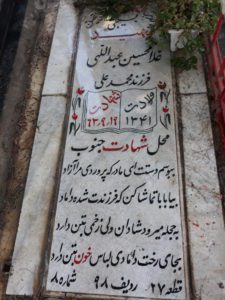 شهید
غلامحسین عبدالنبی
فرزند محمد علی
ولادت شهادت
۱۳۴۱ ۶۳.۹.۱۹
محل شهادت جنوب
ببوسم دستت ای مادر که پروردی مرا آزاد
بیا بابا تماشا کن که فرزندت شده داماد
به حجله میرود شادان ولی زخمی بتن دارد
بجای رخت دامادی لباس خون بتن دارد
قطعه ۲۷ ردیف ۹۸ شماره ۸